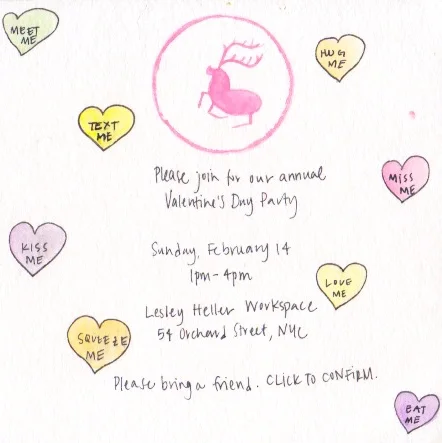 MEET
ME
HUG
ME
TEXT
ME
Please join for our annual
MISS
ME
Valentine's Day Party
KISS
ME
Sunday, February 14
1pm-4pm
LOVE
ME
Lesley Heller Workspace
54 Orchard Street, NYC
SQUEEZE
ME
Please bring a friend. CLICK TO CONFIRM.
EAT
ME